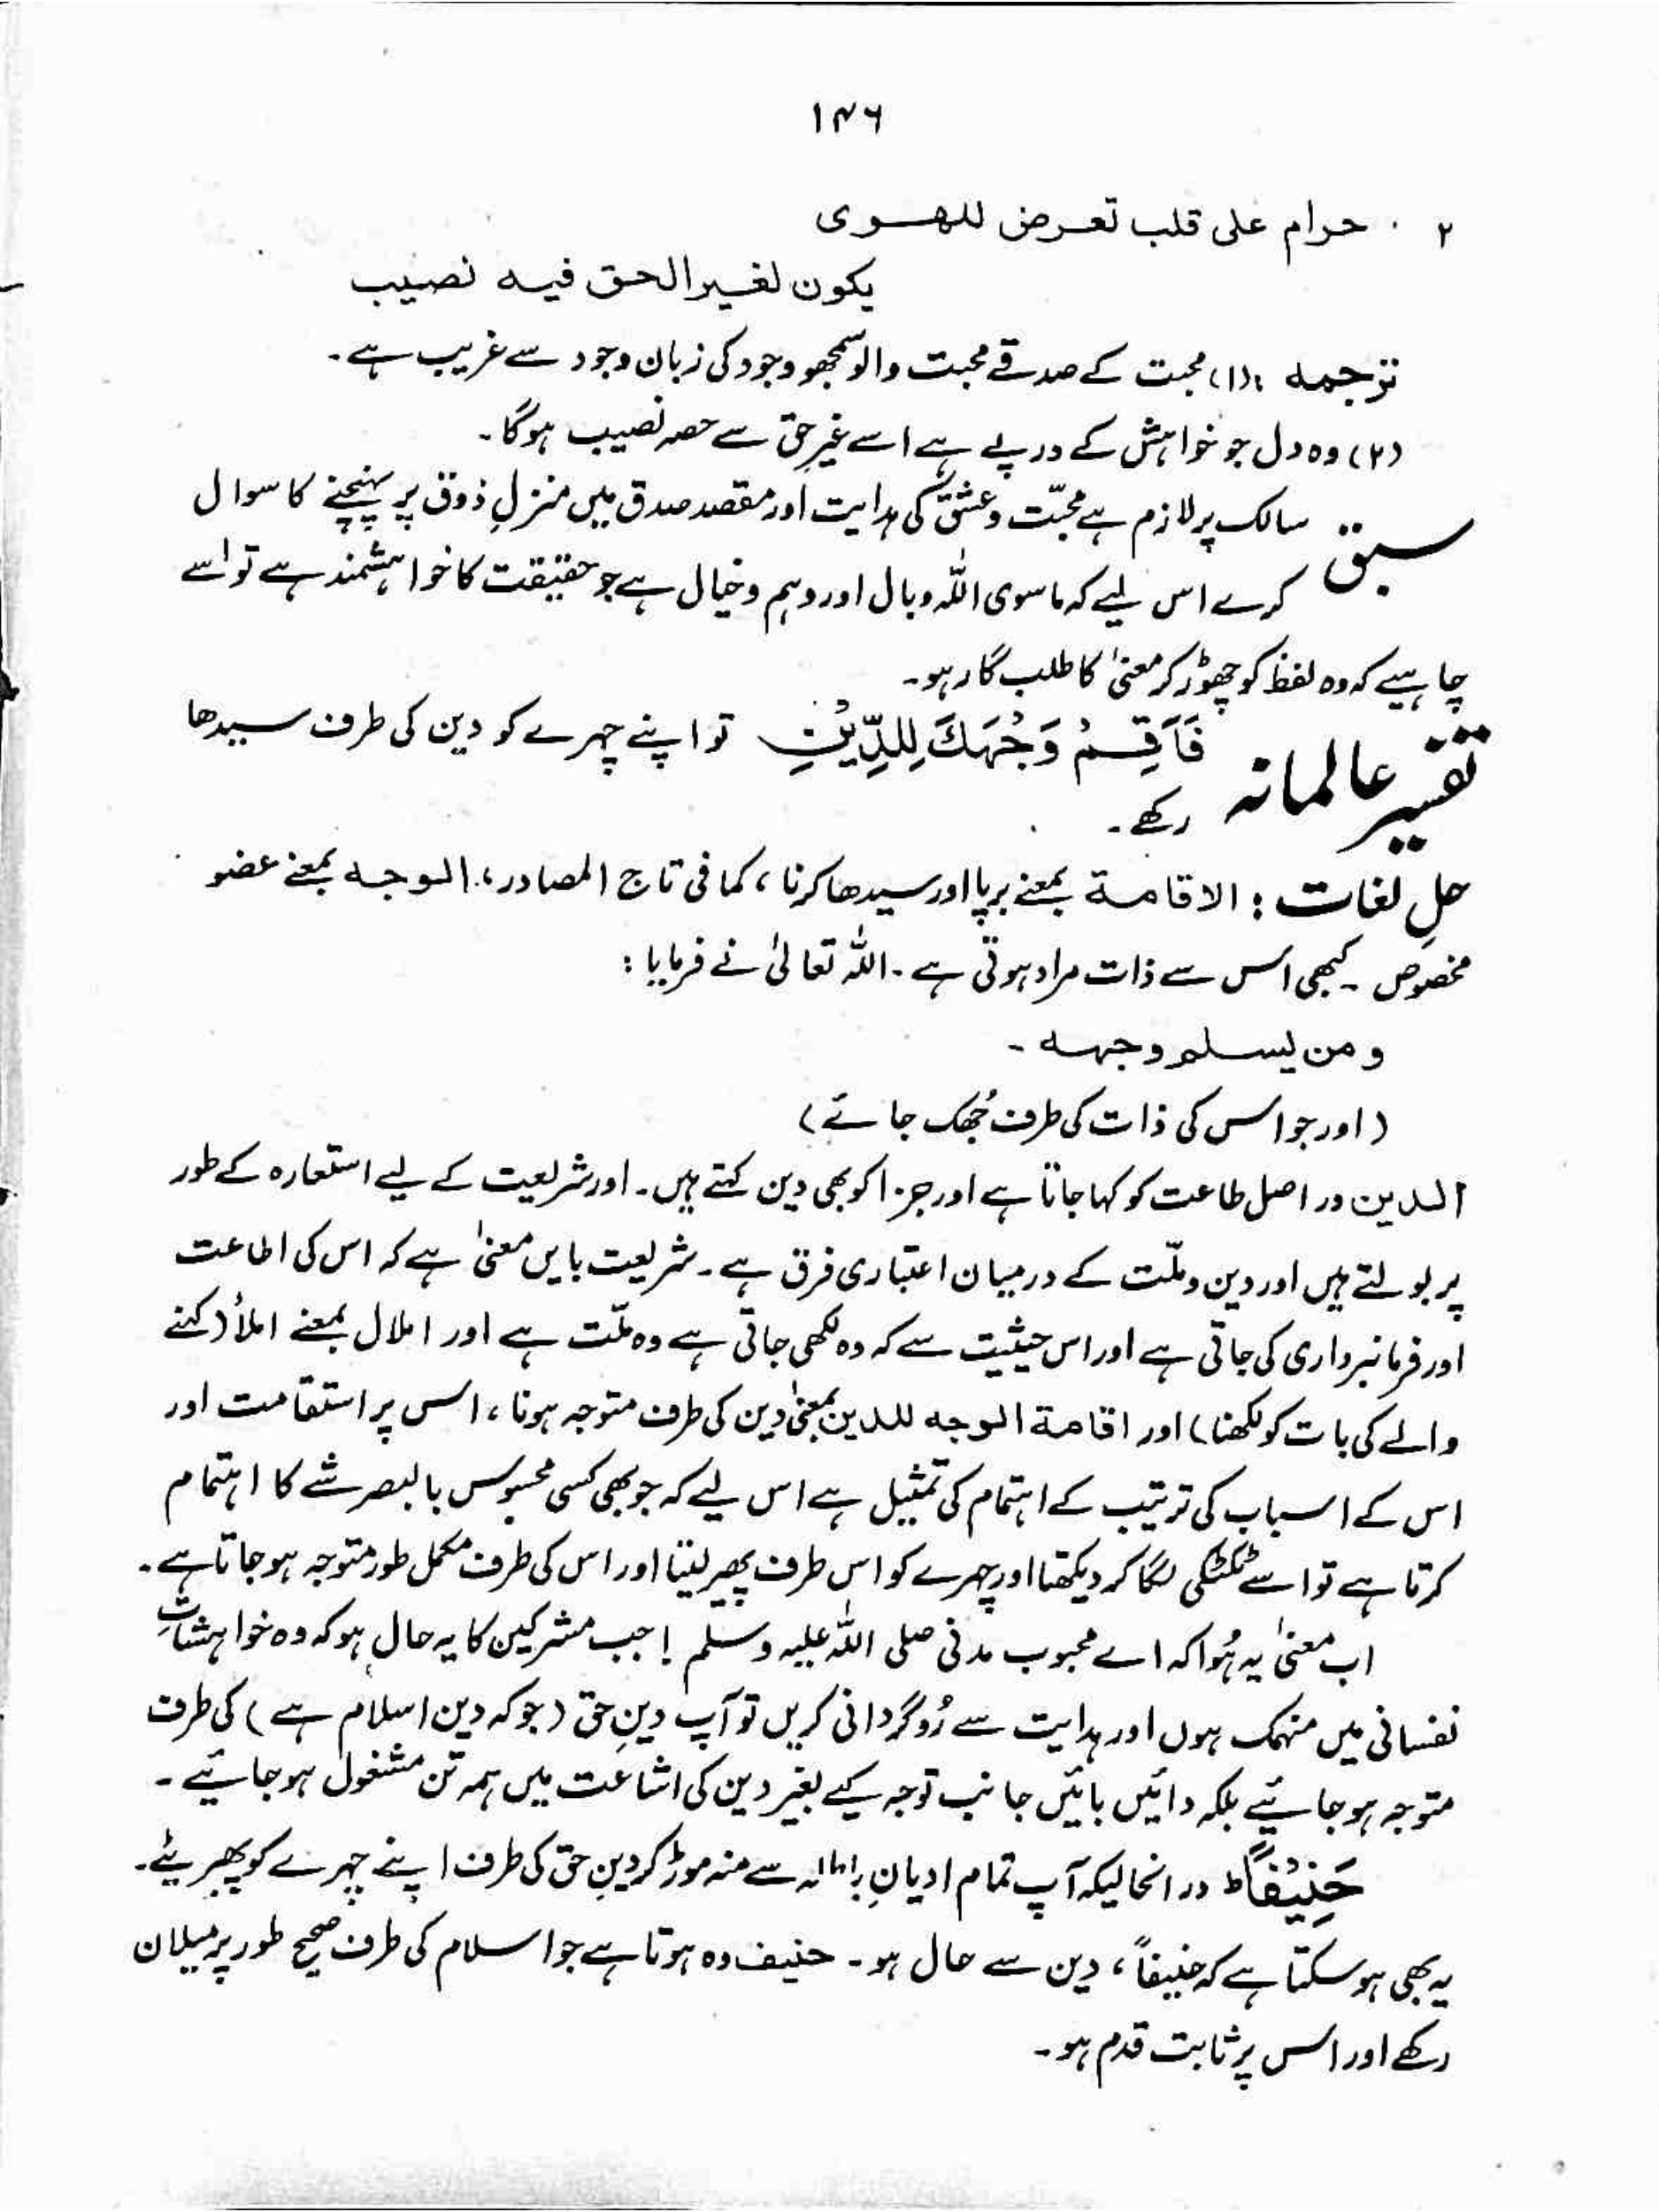 ۱۴۶
۲ . حرام علی قلب تعرض للهوی
یکون لغیر الحق فیه نصیب
ترجمہ : (۱) محبت کے صدقے محبت والو سمجھو وجود کی زبان وجود سے غریب ہے۔
(۲) وہ دل جو خواہش کے درپے ہے اسے غیرِ حق سے حصہ نصیب ہوگا۔
سبق سالک پر لازم ہے محبّت و عشق کی ہدایت اور مقصد صدق میں منزلِ ذوق پر پہنچنے کا سوال
کرے اس لیے کہ ماسوی اللہ وبال اور وہم و خیال ہے جو حقیقت کا خواہشمند ہے تو اسے
چاہیے کہ وہ لفظ کو چھوڑ کر معنیٰ کا طلب گار ہو۔
تفسیر عالمانہ فَاَقِمْ وَجْهَكَ لِلدِّیْنِ تو اپنے چہرے کو دین کی طرف سیدھا
رکھے۔
حلِ لغات : الاقامة بمعنے برپا اور سیدھا کرنا ، کما فی تاج المصادر ، الوجه بمعنے عضو
مخصوص ۔ کبھی اس سے ذات مراد ہوتی ہے ۔ اللہ تعالیٰ نے فرمایا :
و من یسلم وجهه ۔
( اور جو اس کی ذات کی طرف جُھک جائے )
الدین در اصل طاعت کو کہا جاتا ہے اور جزا کو بھی دین کہتے ہیں ۔ اور شریعت کے لیے استعارہ کے طور
پر بولتے ہیں اور دین و ملّت کے درمیان اعتباری فرق ہے ۔ شریعت بایں معنیٰ ہے کہ اس کی اطاعت
اور فرمانبرداری کی جاتی ہے اور اس حیثیت سے کہ وہ لکھی جاتی ہے وہ ملّت ہے اور املال بمعنے املأ (کہنے
والے کی بات کو لکھنا) اور اقامة الوجه للدین بمعنیٰ دین کی طرف متوجہ ہونا ، اس پر استقامت اور
اس کے اسباب کی ترتیب کے اہتمام کی تمثیل ہے اس لیے کہ جو بھی کسی محسوس بالبصر شے کا اہتمام
کرتا ہے تو اسے ٹکٹکی لگا کر دیکھتا اور چہرے کو اس طرف پھیر لیتا اور اس کی طرف مکمل طور متوجہ ہو جاتا ہے ۔
اب معنیٰ یہ ہُوا کہ اے محبوب مدنی صلی اللہ علیہ وسلم ! جب مشرکین کا یہ حال ہو کہ وہ خواہشاتِ
نفسانی میں منہمک ہوں اور ہدایت سے رُوگردانی کریں تو آپ دینِ حق ( جو کہ دین اسلام ہے ) کی طرف
متوجہ ہو جائیے بلکہ دائیں بائیں جانب توجہ کیے بغیر دین کی اشاعت میں ہمہ تن مشغول ہو جائیے ۔
حَنِیْفًا ط در انحالیکہ آپ تمام ادیانِ باطلہ سے منہ موڑ کر دینِ حق کی طرف اپنے چہرے کو پھیریئے۔
یہ بھی ہو سکتا ہے کہ حنیفاً ، دین سے حال ہو ۔ حنیف وہ ہوتا ہے جو اسلام کی طرف صحیح طور پر میلان
رکھے اور اس پر ثابت قدم ہو ۔